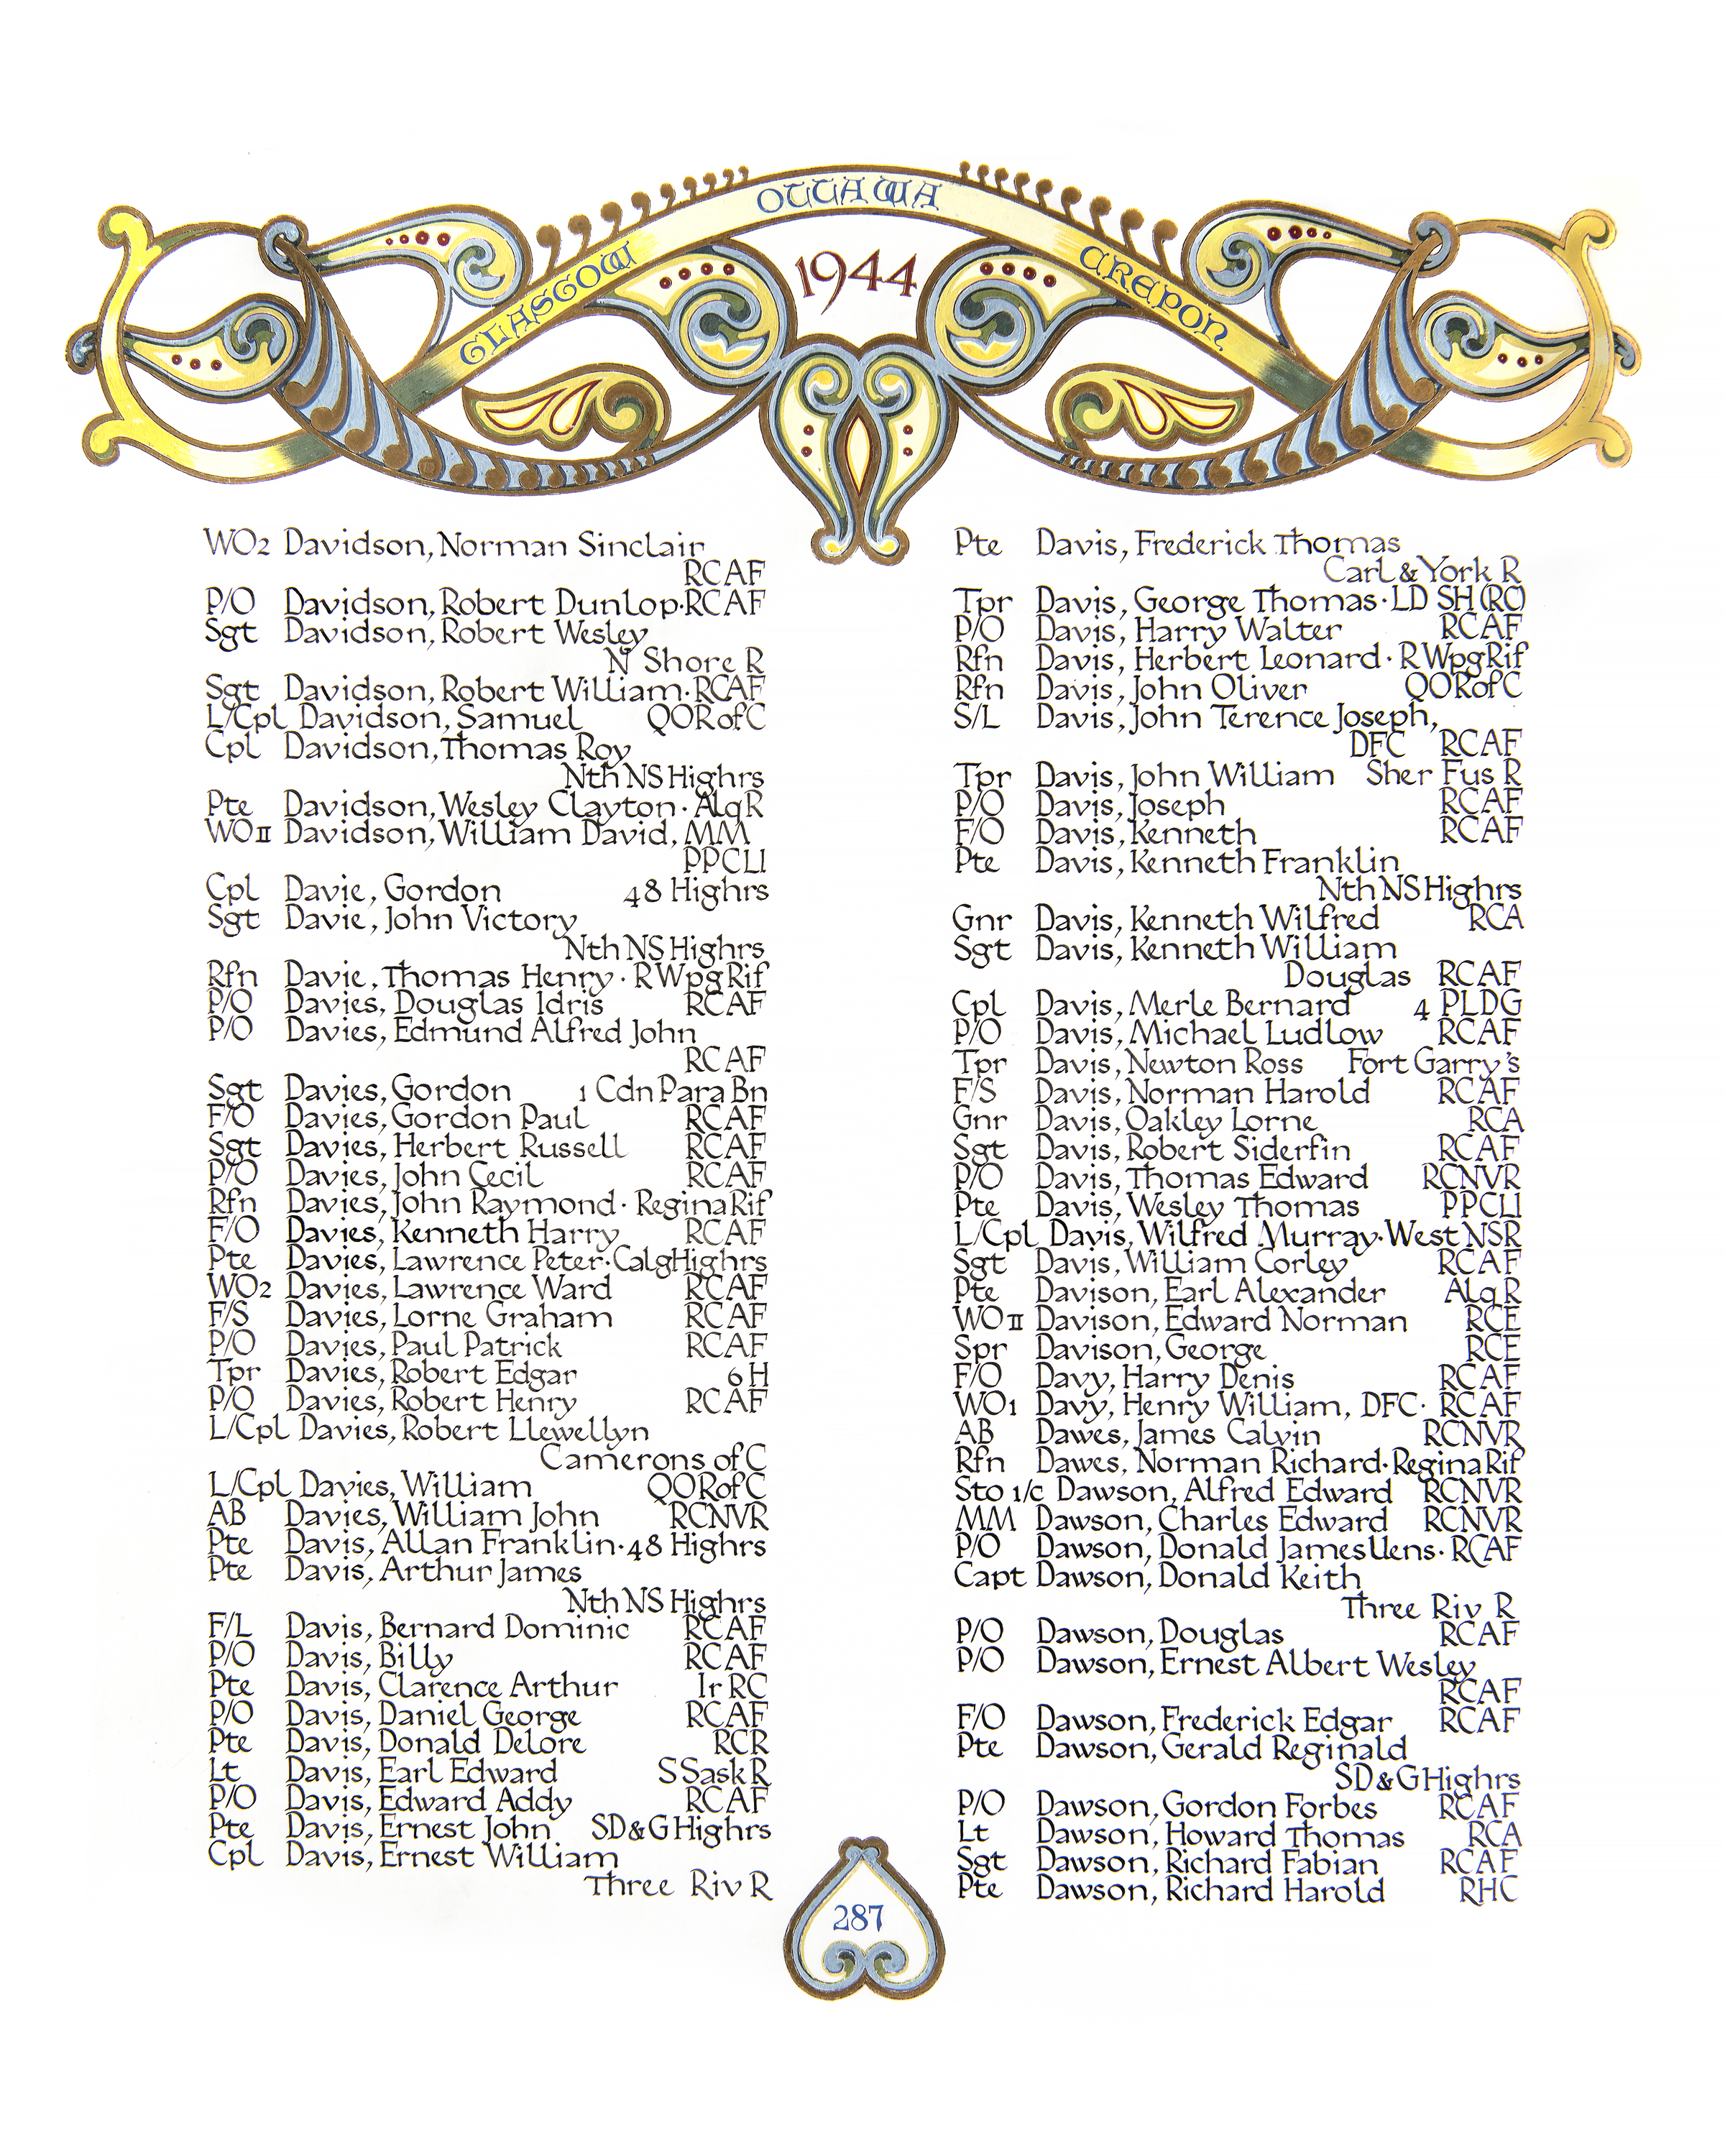 OTTAWA
GLASGOW
CREPON
1944
WO2 Davidson, Norman Sinclair
RCAF
P/O Davidson, Robert Dunlop·RCAF
Sgt Davidson, Robert Wesley
N Shore R
Sgt Davidson, Robert William·RCAF
L/Cpl Davidson, Samuel QORofC
Cpl Davidson, Thomas Roy
Nth NS Highrs
Pte Davidson, Wesley Clayton·AlqR
WOII Davidson, William David, MM
PPCLI
Cpl Davie, Gordon 48 Highrs
Sgt Davie, John Victory
Nth NS Highrs
Rfn Davie, Thomas Henry·RWpgRif
P/O Davies, Douglas Idris RCAF
P/O Davies, Edmund Alfred John
RCAF
Sgt Davies, Gordon 1 Cdn Para Bn
F/O Davies, Gordon Paul RCAF
Sgt Davies, Herbert Russell RCAF
P/O Davies, John Cecil RCAF
Rfn Davies, John Raymond·ReginaRif
F/O Davies, Kenneth Harry RCAF
Pte Davies, Lawrence Peter·CalgHighrs
WO2 Davies, Lawrence Ward RCAF
F/S Davies, Lorne Graham RCAF
P/O Davies, Paul Patrick RCAF
Tpr Davies, Robert Edgar 6 H
P/O Davies, Robert Henry RCAF
L/Cpl Davies, Robert Llewellyn
Camerons of C
L/Cpl Davies, William QORofC
AB Davies, William John RCNVR
Pte Davis, Allan Franklin·48 Highrs
Pte Davis, Arthur James
Nth NS Highrs
F/L Davis, Bernard Dominic RCAF
P/O Davis, Billy RCAF
Pte Davis, Clarence Arthur Ir RC
P/O Davis, Daniel George RCAF
Pte Davis, Donald Delore RCR
Lt Davis, Earl Edward S Sask R
P/O Davis, Edward Addy RCAF
Pte Davis, Ernest John SD&G Highrs
Cpl Davis, Ernest William
Three Riv R
Pte Davis, Frederick Thomas
Carl & York R
Tpr Davis, George Thomas·LD SH (RC)
P/O Davis, Harry Walter RCAF
Rfn Davis, Herbert Leonard·RWpgRif
Rfn Davis, John Oliver QORofC
S/L Davis, John Terence Joseph,
DFC RCAF
Tpr Davis, John William Sher Fus R
P/O Davis, Joseph RCAF
F/O Davis, Kenneth RCAF
Pte Davis, Kenneth Franklin
Nth NS Highrs
Gnr Davis, Kenneth Wilfred RCA
Sgt Davis, Kenneth William
Douglas RCAF
Cpl Davis, Merle Bernard 4 PLDG
P/O Davis, Michael Ludlow RCAF
Tpr Davis, Newton Ross Fort Garry's
F/S Davis, Norman Harold RCAF
Gnr Davis, Oakley Lorne RCA
Sgt Davis, Robert Siderfin RCAF
P/O Davis, Thomas Edward RCNVR
Pte Davis, Wesley Thomas PPCLI
L/Cpl Davis, Wilfred Murray·West NSR
Sgt Davis, William Corley RCAF
Pte Davison, Earl Alexander Alq R
WOII Davison, Edward Norman RCE
Spr Davison, George RCE
F/O Davy, Harry Denis RCAF
WO1 Davy, Henry William, DFC·RCAF
AB Dawes, James Calvin RCNVR
Rfn Dawes, Norman Richard·ReginaRif
Sto 1/c Dawson, Alfred Edward RCNVR
MM Dawson, Charles Edward RCNVR
P/O Dawson, Donald James Uens·RCAF
Capt Dawson, Donald Keith
Three Riv R
P/O Dawson, Douglas RCAF
P/O Dawson, Ernest Albert Wesley
RCAF
F/O Dawson, Frederick Edgar RCAF
Pte Dawson, Gerald Reginald
SD&G Highrs
P/O Dawson, Gordon Forbes RCAF
Lt Dawson, Howard Thomas RCA
Sgt Dawson, Richard Fabian RCAF
Pte Dawson, Richard Harold RHC
287